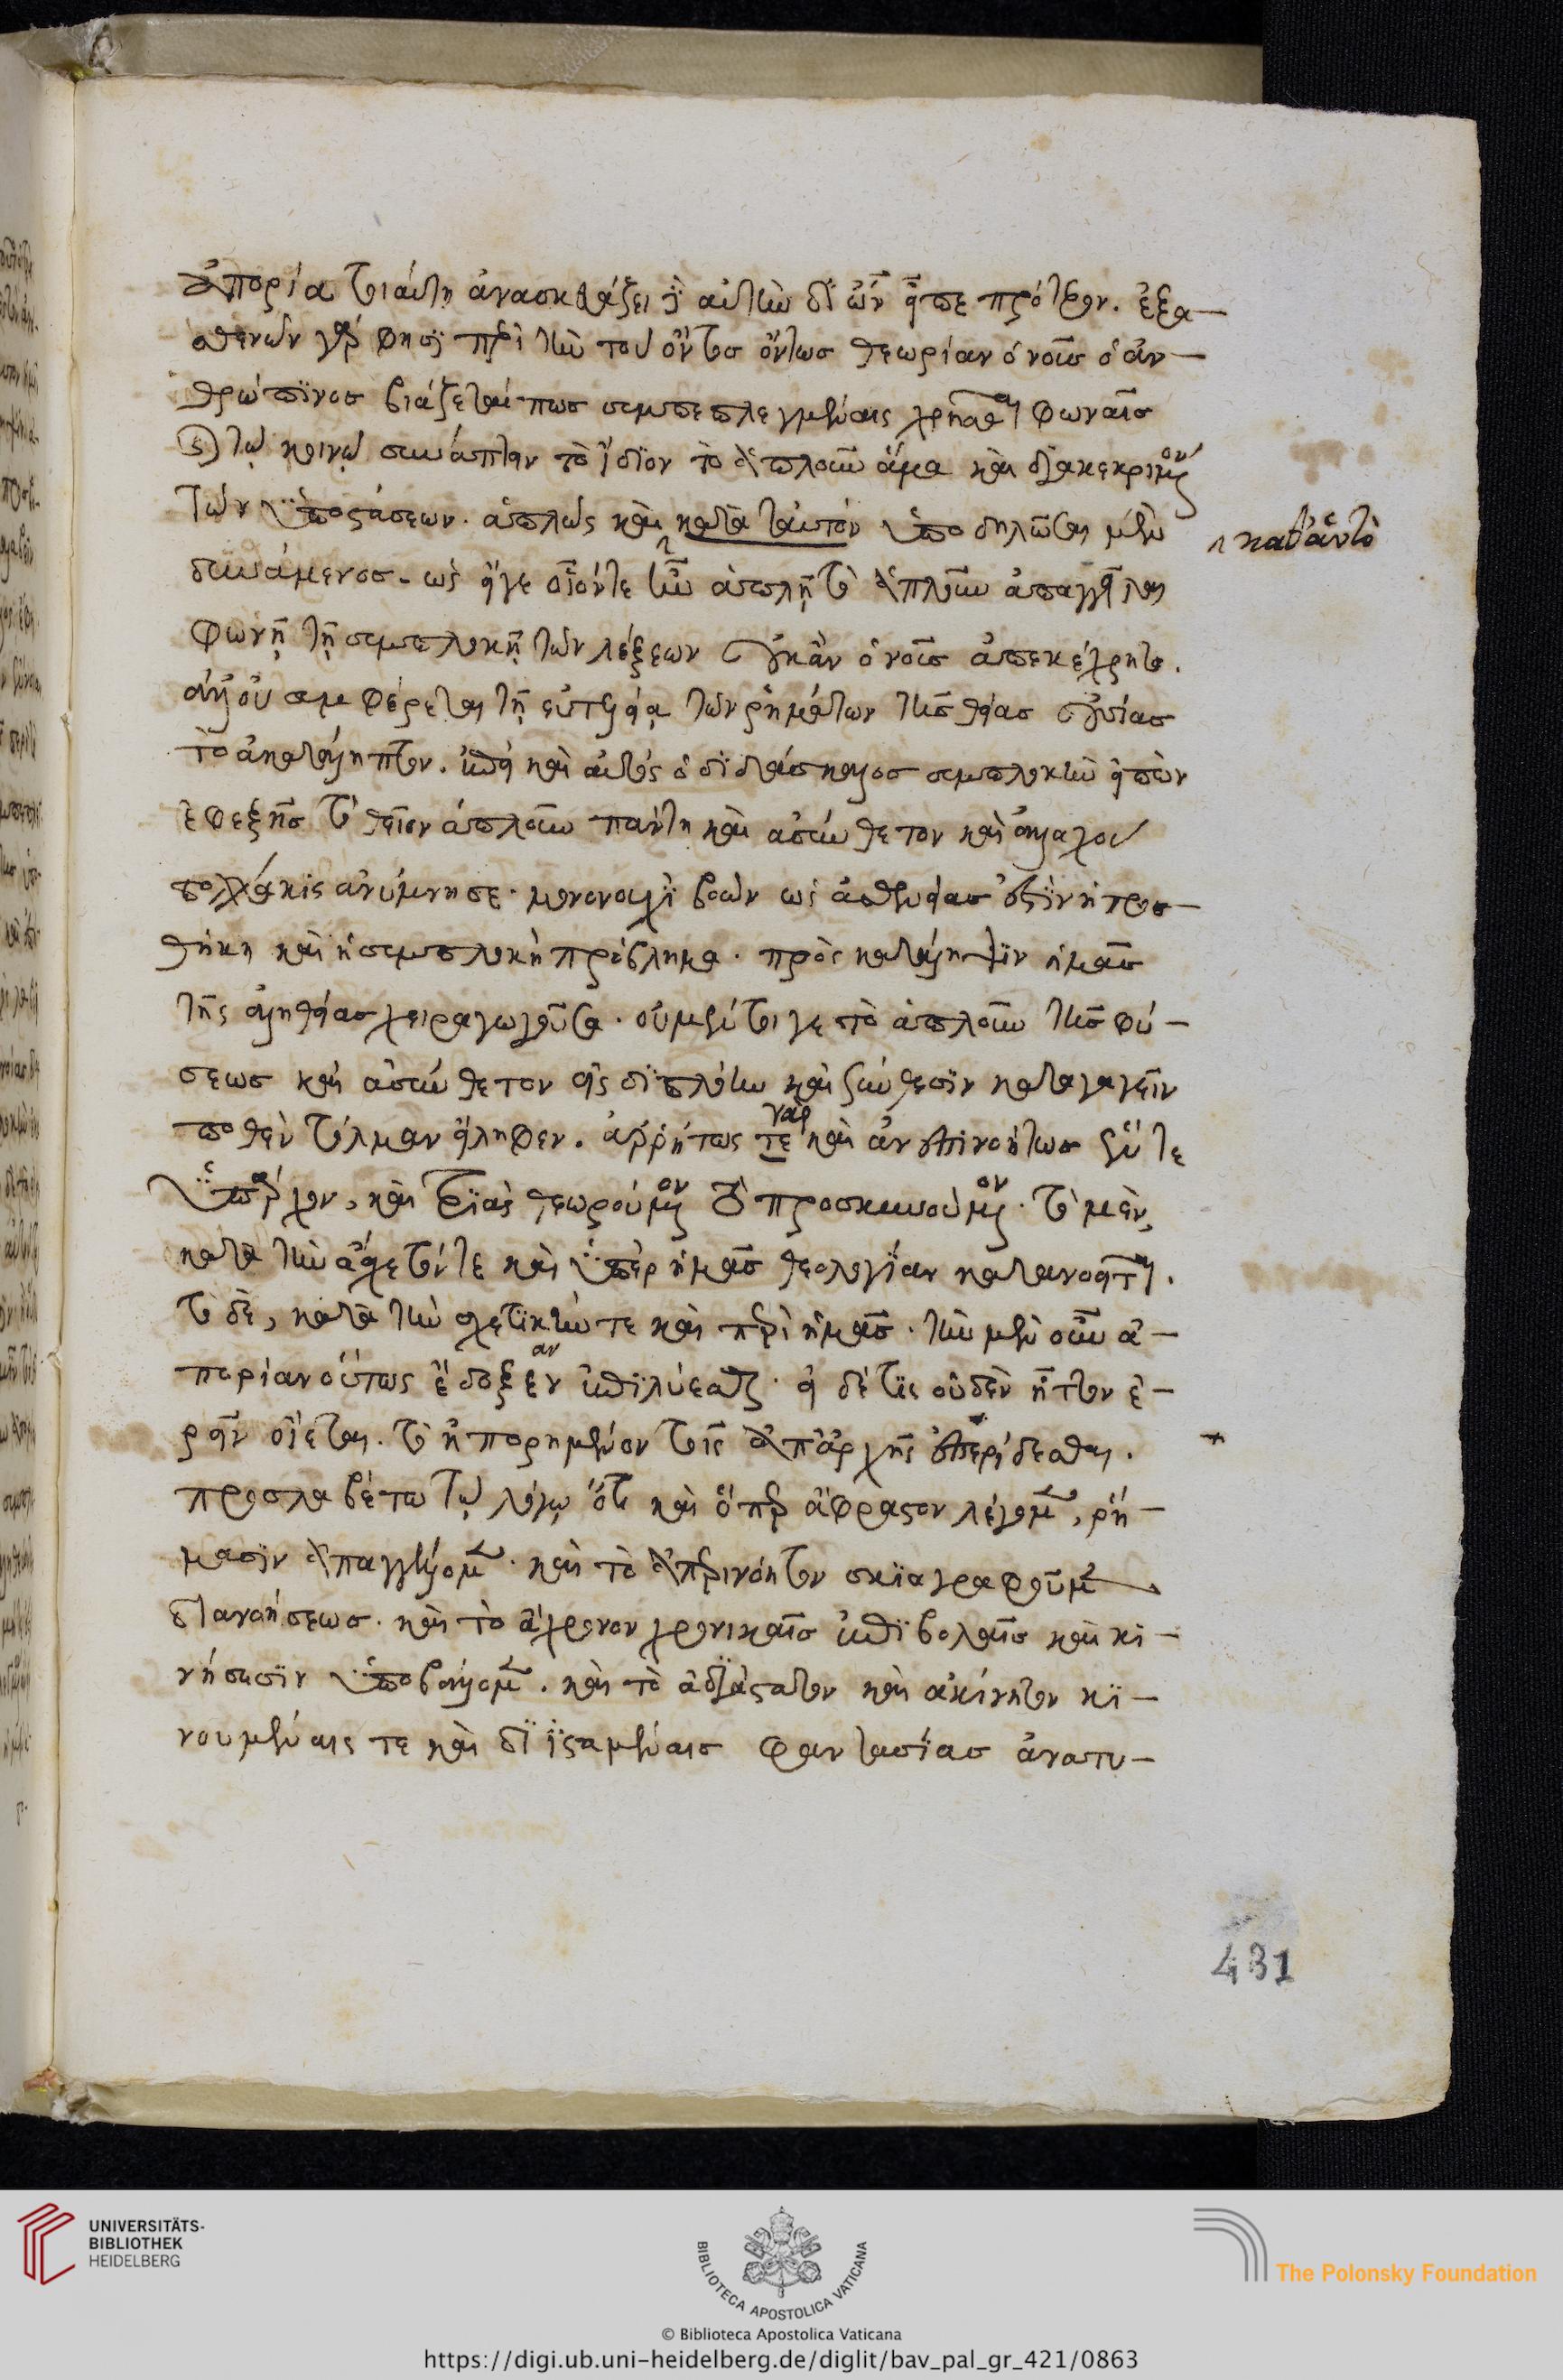 ἀπορία τοιαύτη ἀνασκευάζει δὲ αὐτὴν δι' ὧν εἶπε πρότερον. ἐξα-
σθενῶν γάρ φησι περὶ τὴν τοῦ ὄντος ὄντως θεωρίαν ὁ νοῦς ὁ ἀν-
θρώπινος βιάζεταί πως συμπεπλεγμέναις χρῆσθαι φωναῖς
τῷ κοινῷ συνάπτων τὸ ἴδιον τὸ ἁπλοῦν ἅμα καὶ διακεκριμένον
τῶν ὑποστάσεων. ἁπλῶς καὶ κατὰ ταυτὸν ὑποδηλῶσαι μὴ
κατ' αὐτὸ
δυνάμενος. ὡς εἴγε οἷόν τε ἦν ἁπλῇ τὸ ἁπλοῦν ἀπαγγεῖλαι
φωνῇ τῇ συμπλοκῇ τῶν λέξεων οὐκ ἂν ὁ νοῦς ἀπεκέχρητο.
ἀλλ' οὐ συμφέρεται τῇ εὐτελείᾳ τῶν ῥημάτων τῆς θείας οὐσίας
τὸ ἀκατάληπτον. ἐπεὶ καὶ αὐτὸς ὁ διδάσκαλος συμπλοκὴν εἰπὼν
ἐφεξῆς τὸ θεῖον ἁπλοῦν πάντη καὶ ἀσύνθετον καὶ ἀλλαχοῦ
πολλάκις ἀνύμνησε. μονονουχὶ βοῶν ὡς ἀσθενείας ἐστὶν ἡ προσ-
θήκη καὶ ἡ συμπλοκὴ πρόβλημα. πρὸς κατάληψιν ἡμᾶς
τῆς ἀληθείας χειραγωγοῦσα. οὐ μέντοι γε τὸ ἁπλοῦν τῆς φύ-
σεως καὶ ἀσύνθετον εἰς διπλόην καὶ σύνθεσιν καταγαγεῖν
ποθὲν τόλμαν εἴληφεν. ἀρρήτως τε γὰρ καὶ ἀνεπινοήτως ἕν τε
ὑπάρχον, καὶ τριὰς θεωρούμενον τὸ προσκυνούμενον. τὸ μὲν,
κατὰ τὴν ἄσχετόν τε καὶ ὑπὲρ ἡμᾶς θεολογίαν κατανοεῖται.
τὸ δὲ, κατὰ τὴν σχετικήν τε καὶ περὶ ἡμᾶς. τὴν μὲν οὖν ἀ-
πορίαν οὕτως ἔδοξεν ἂν ἐπιλύεσθαι. εἰ δέ τις οὐδὲν ἧττον ἐ-
ρεῖν οἴεται. τὸ ἠπορημένον τοῖς ἀπ' ἀρχῆς ἐπερείδεσθαι.
προσλαβέτω τῷ λόγῳ ὅτι καὶ ὅπερ ἄφραστον λέγομεν, ῥή-
μασιν ἀπαγγέλλομεν. καὶ τὸ ἀπερινόητον σκιαγραφοῦμεν
διανοήσεως. καὶ τὸ ἄχρονον χρονικαῖς ἐπιβολαῖς καὶ κι-
νήσεσιν ὑποβάλλομεν. καὶ τὸ ἀδιάστατον καὶ ἀκίνητον κι-
νουμέναις τε καὶ διϊσταμέναις φαντασίας ἀνατυ-
431
UNIVERSITÄTS-
BIBLIOTHEK
HEIDELBERG
BIBLIOTECA APOSTOLICA VATICANA
The Polonsky Foundation
© Biblioteca Apostolica Vaticana
https://digi.ub.uni-heidelberg.de/diglit/bav_pal_gr_421/0863